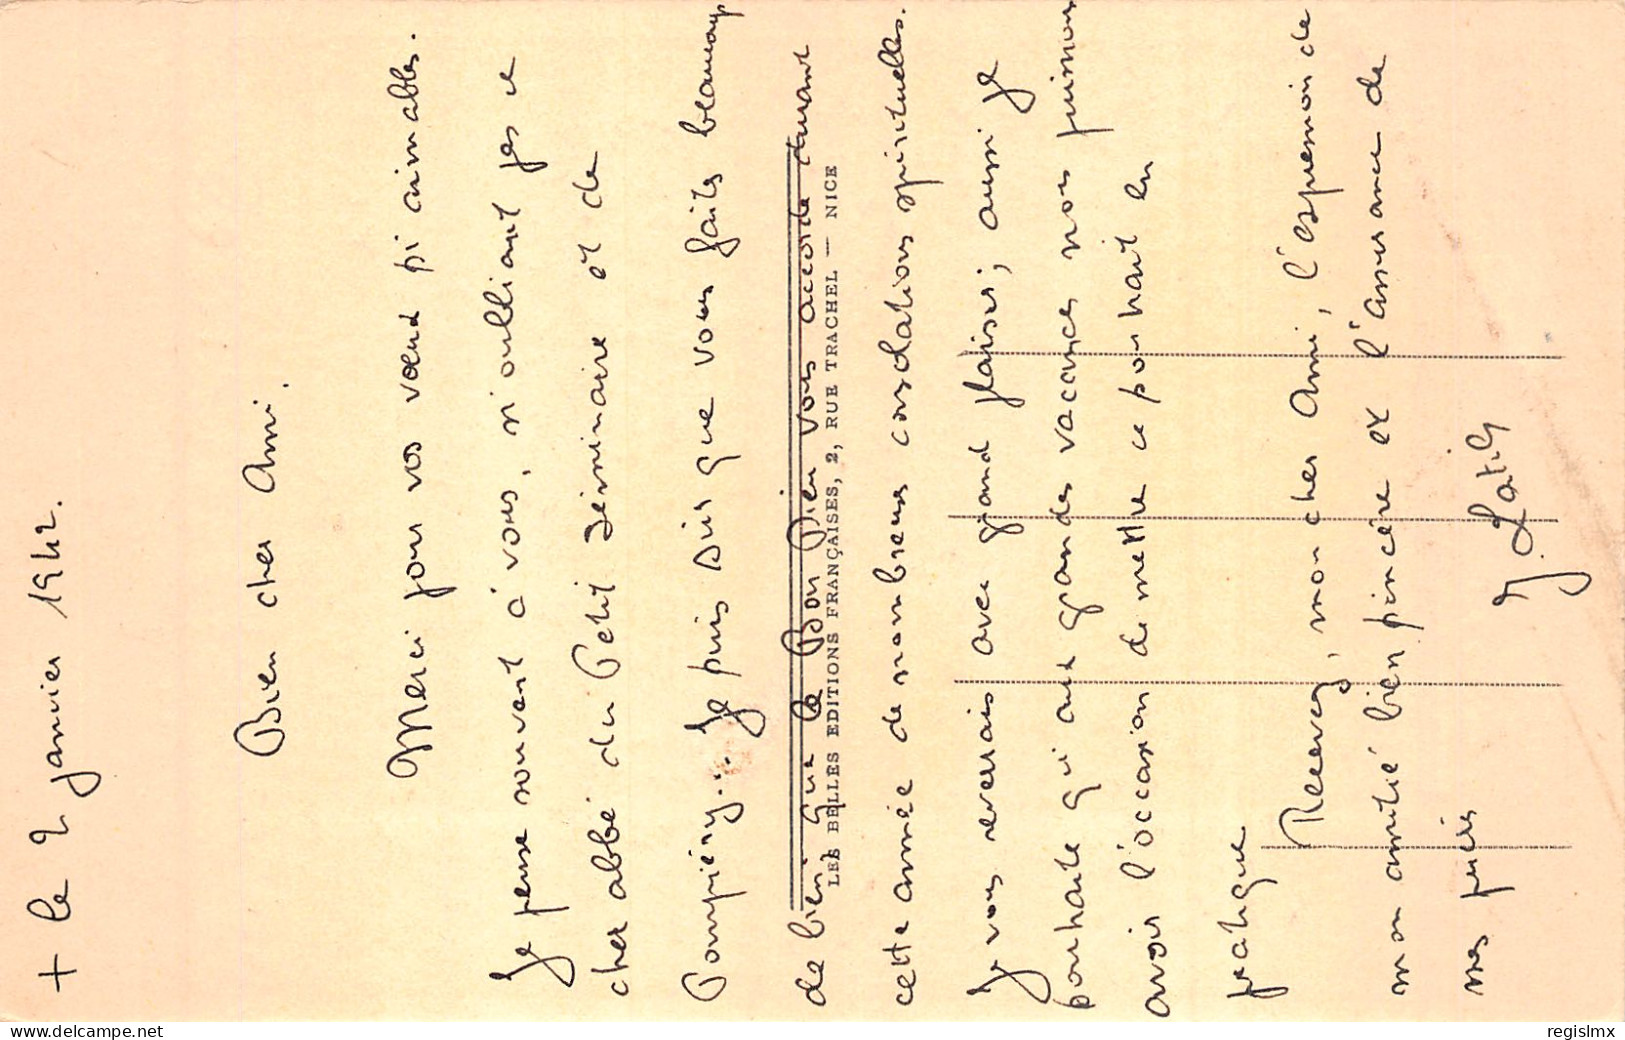 + le 2 janvier 1942.
Bien cher Ami.
Merci pour vos vœux si aimables.
Je pense souvent à vous, n'oubliant pas ce
cher abbé du Petit Séminaire et de
Pompiéry... Je puis dire que vous faites beaucoup
de bien; que le Bon Dieu vous accorde durant
cette année de nombreuses consolations spirituelles.
Je vous reverrais avec grand plaisir; aussi je
souhaite qu'aux grandes vacances nous puissions
avoir l'occasion de mettre ce souhait en
pratique
Recevez, mon cher Ami, l'expression de
mon amitié bien sincère et l'assurance de
mes prières
J. Latil
LES BELLES EDITIONS FRANÇAISES, 2, RUE TRACHEL — NICE
www.delcampe.net
regislmx